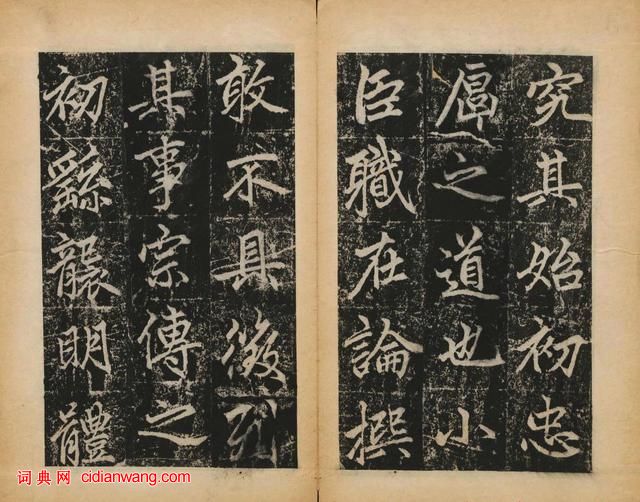 究其始初忠
厚之道也小
臣職在論撰
敢不具徵列
其事宗傳之
初繇襲明體
词典网 cidianwang.com